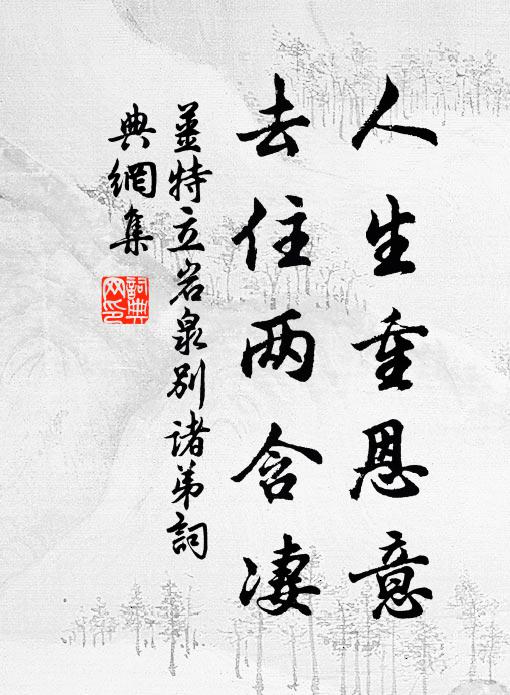 人生重恩意
去住两含凄
姜特立岩泉别诸弟词
典網集
詞典
网印